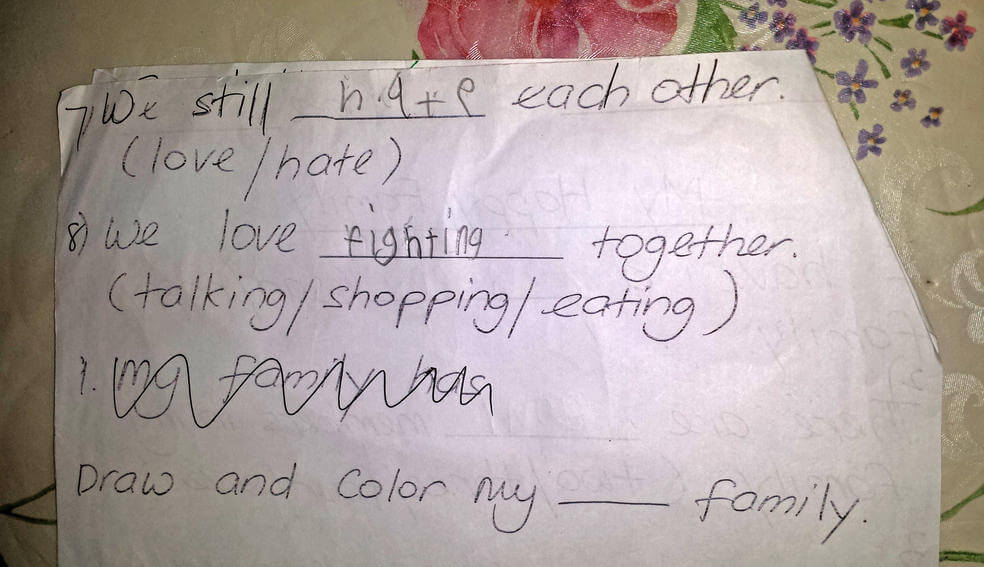 7) We still hate each other.
(love/hate)
8) We love fighting together.
(talking/shopping/eating)
9. my family has
Draw and Color My ___ family.